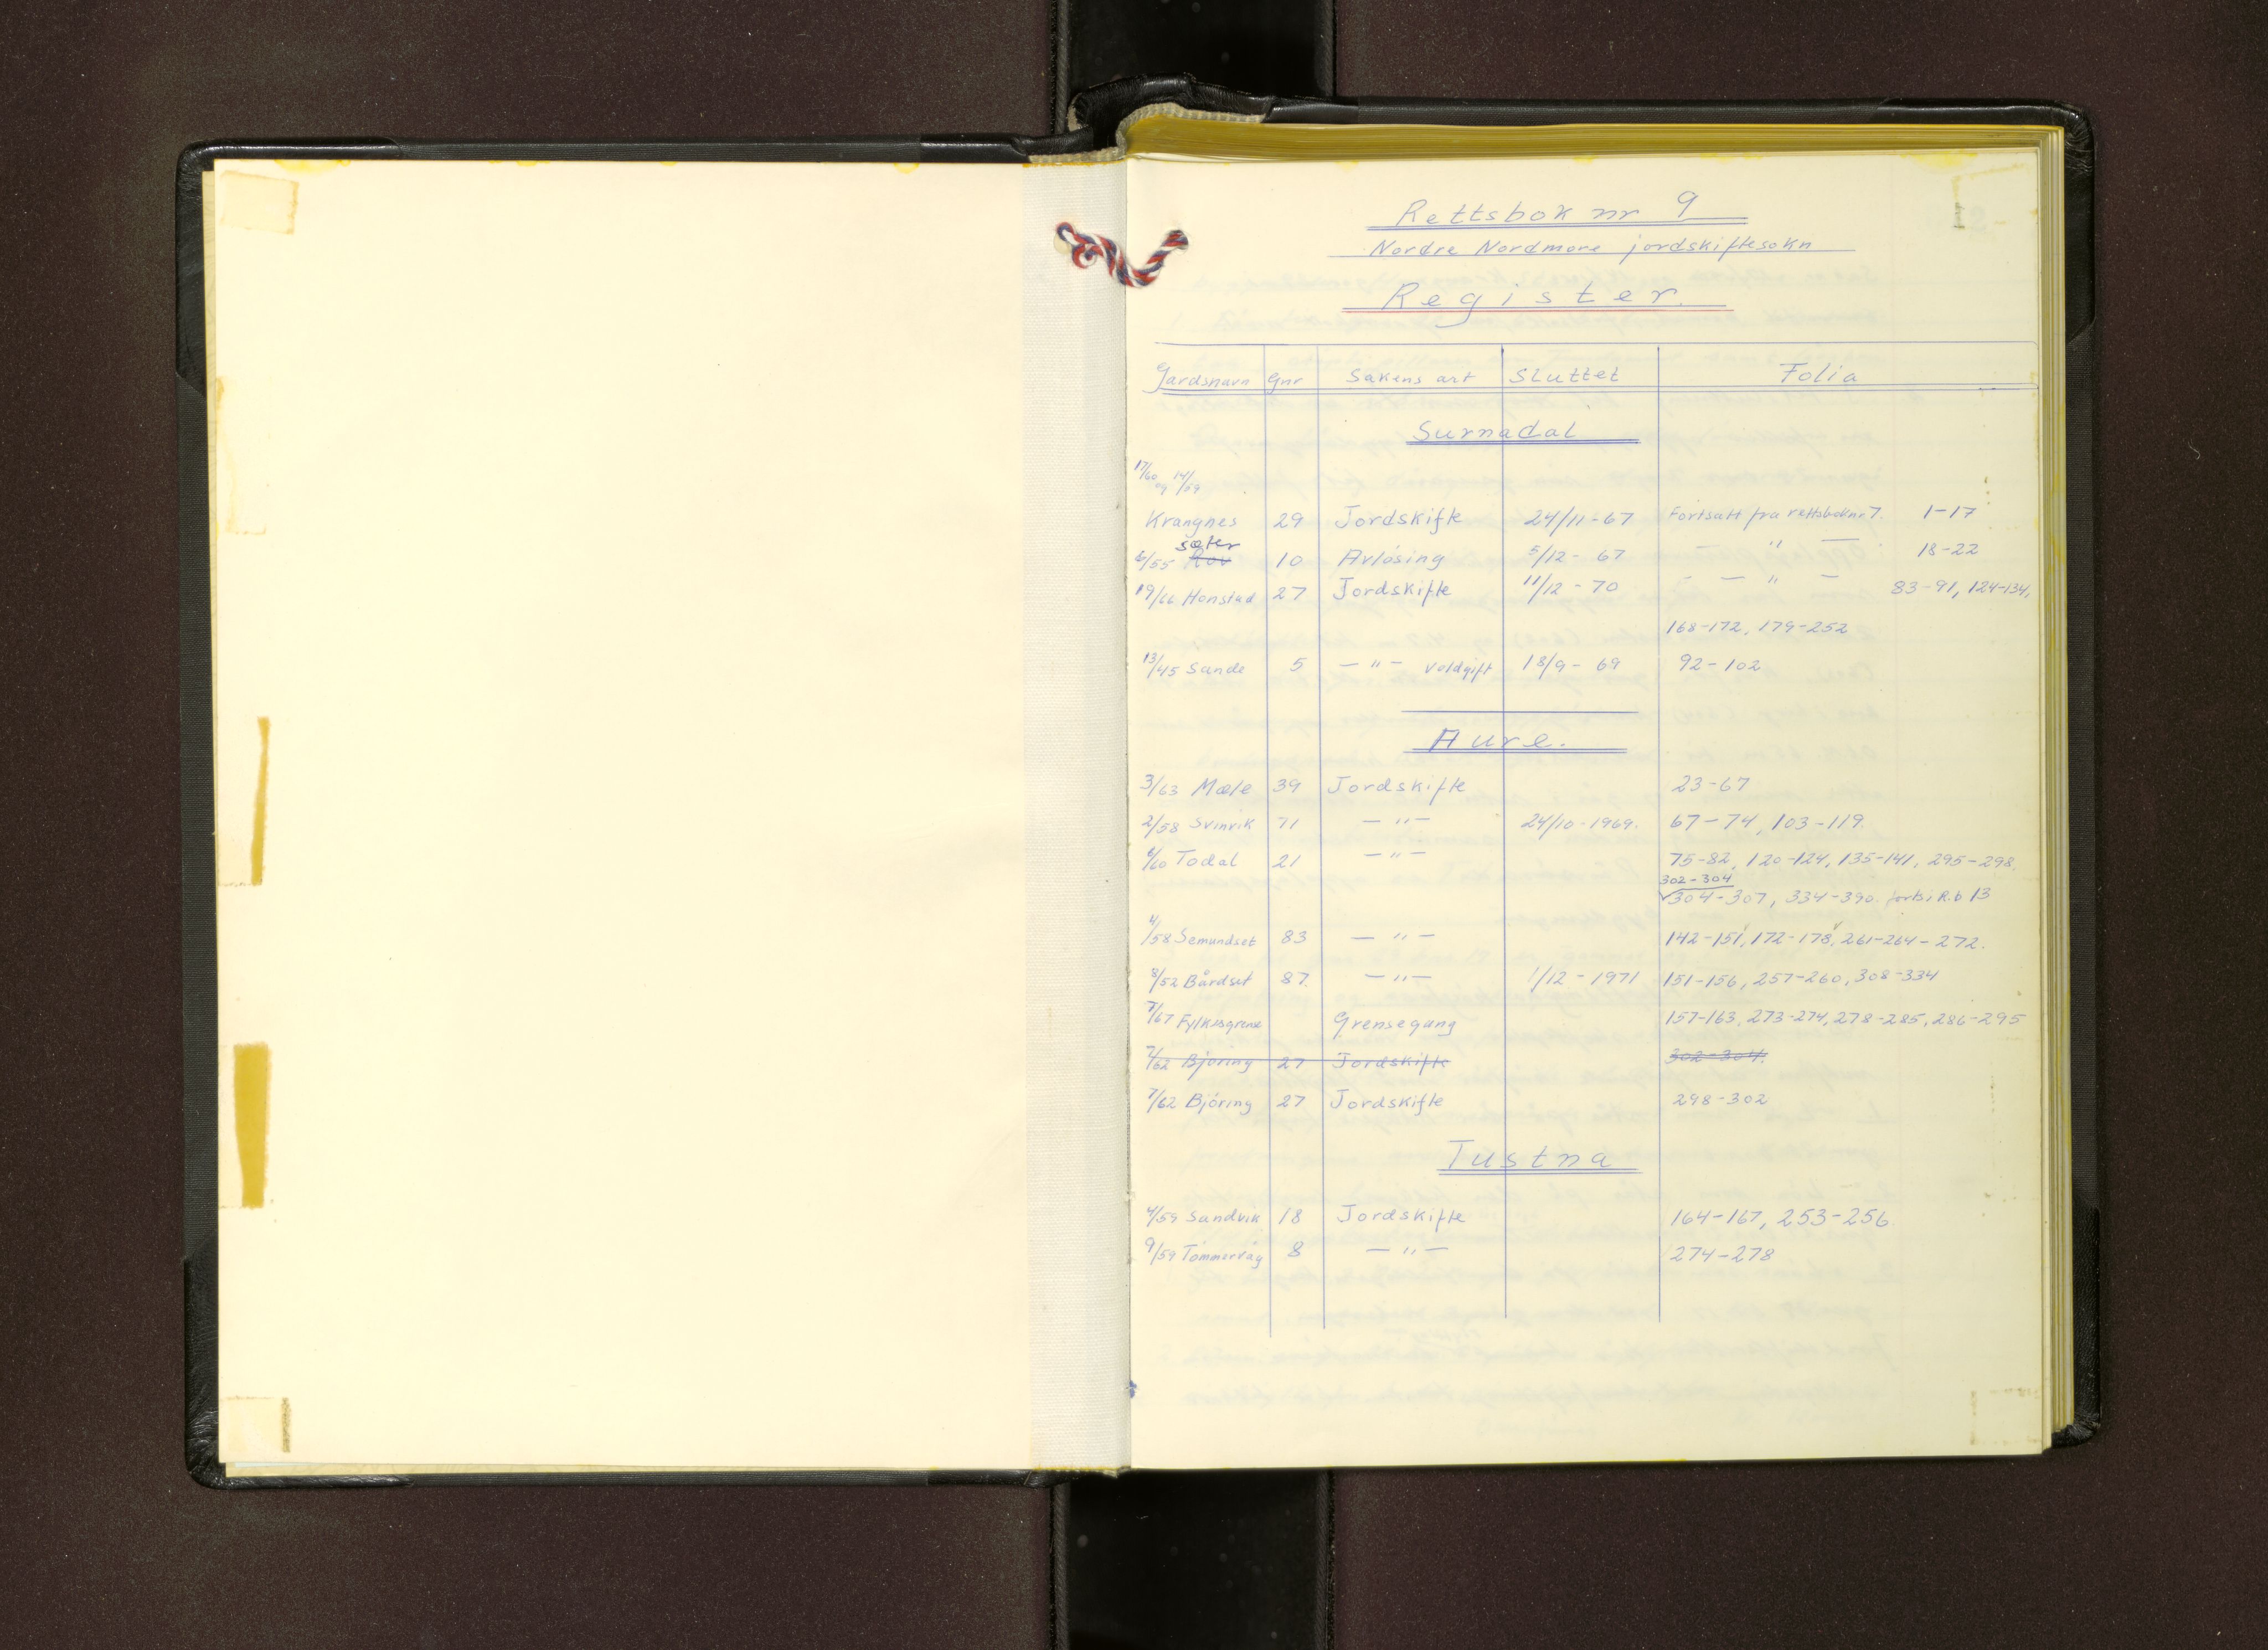 Rettsbok nr 9
Nordre Nordmøre jordskiftesokn
Register.
Gardsnavn Gnr Sakens art Sluttet Folia
Surnadal
17/60 og 14/59
Krangnes 29 Jordskifte 24/11-67 Fortsatt fra rettsbok nr 7. 1-17
sæter
6/55 Rov 10 Avløsing 5/12-67 — " — 18-22
19/66 Honstad 27 Jordskifte 11/12-70 - — " — 83-91, 124-134,
168-172, 179-252
13/45 Sande 5 — " — Voldgift 18/9-69 92-102
Aure.
3/63 Mæle 39 Jordskifte 23-67
2/58 Svinvik 71 — " — 24/10-1969. 67-74, 103-119.
6/60 Todal 21 — " — 75-82, 120-124, 135-141, 295-298,
302-304
304-307, 334-390. forts i R.b 13
4/58 Semundset 83 — " — 142-151, 172-178, 261-264-272.
8/52 Bårdset 87. — " — 1/12-1971 151-156, 257-260, 308-334
7/67 Fylkesgrense Grensegang 157-163, 273-274, 278-285, 286-295
7/62 Bjøring 27 Jordskifte 302-304.
7/62 Bjøring 27 Jordskifte 298-302
Tustna
4/59 Sandvik 18 Jordskifte 164-167, 253-256.
9/59 Tømmervåg 8 — " — 274-278